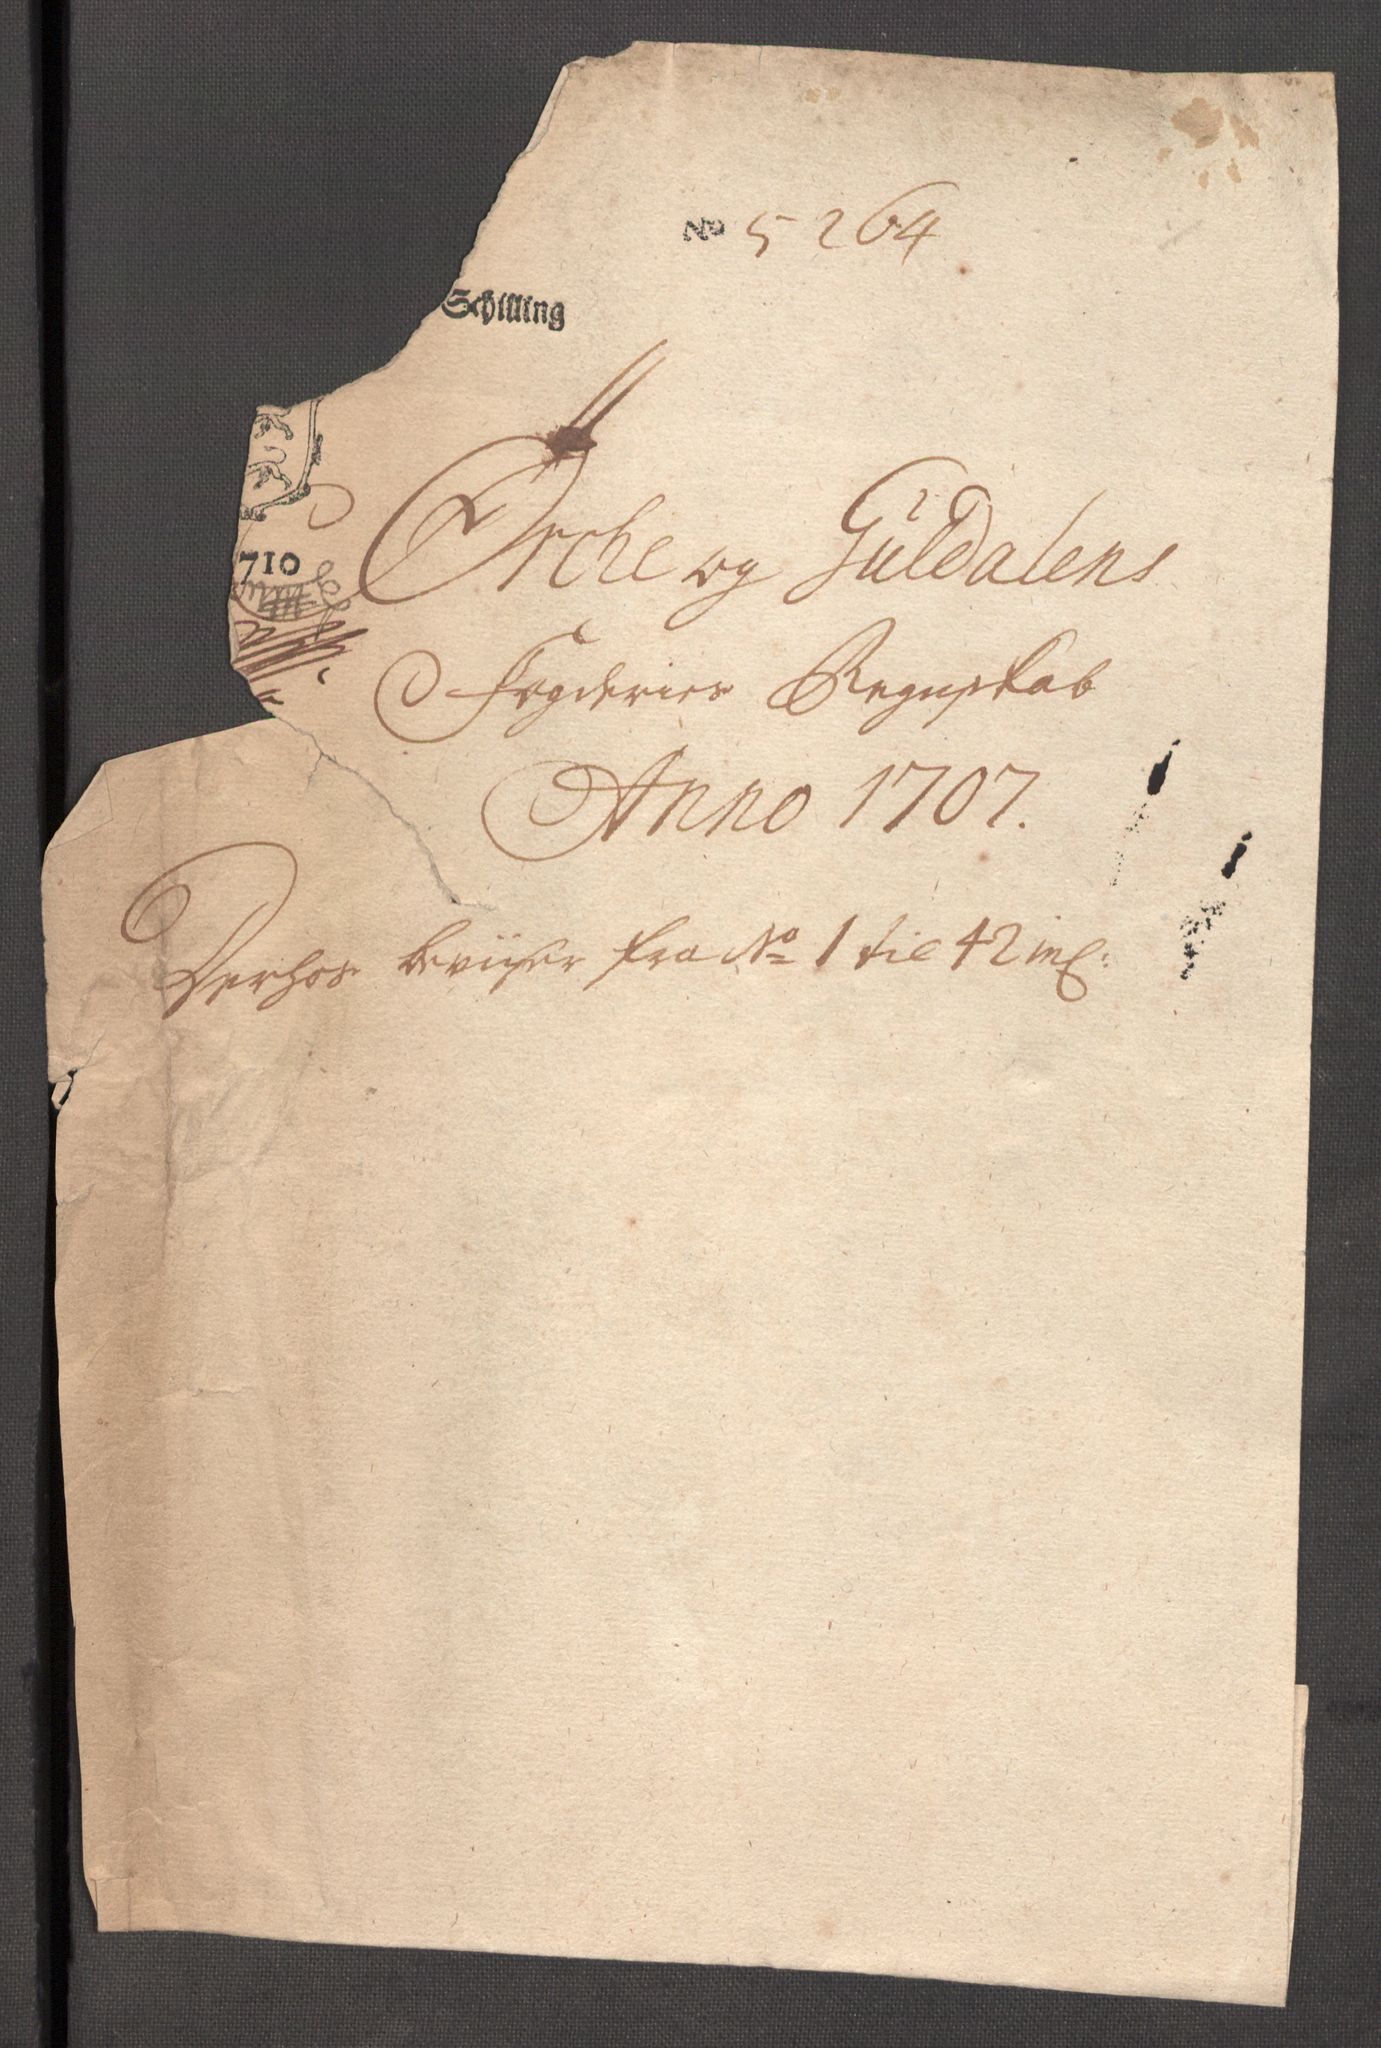 No 5264
Schilling
710
Orche og Güldalens
Fogderies Regnskab
Anno 1707.
Derhos beviiser fra No 1 til 42 inc: